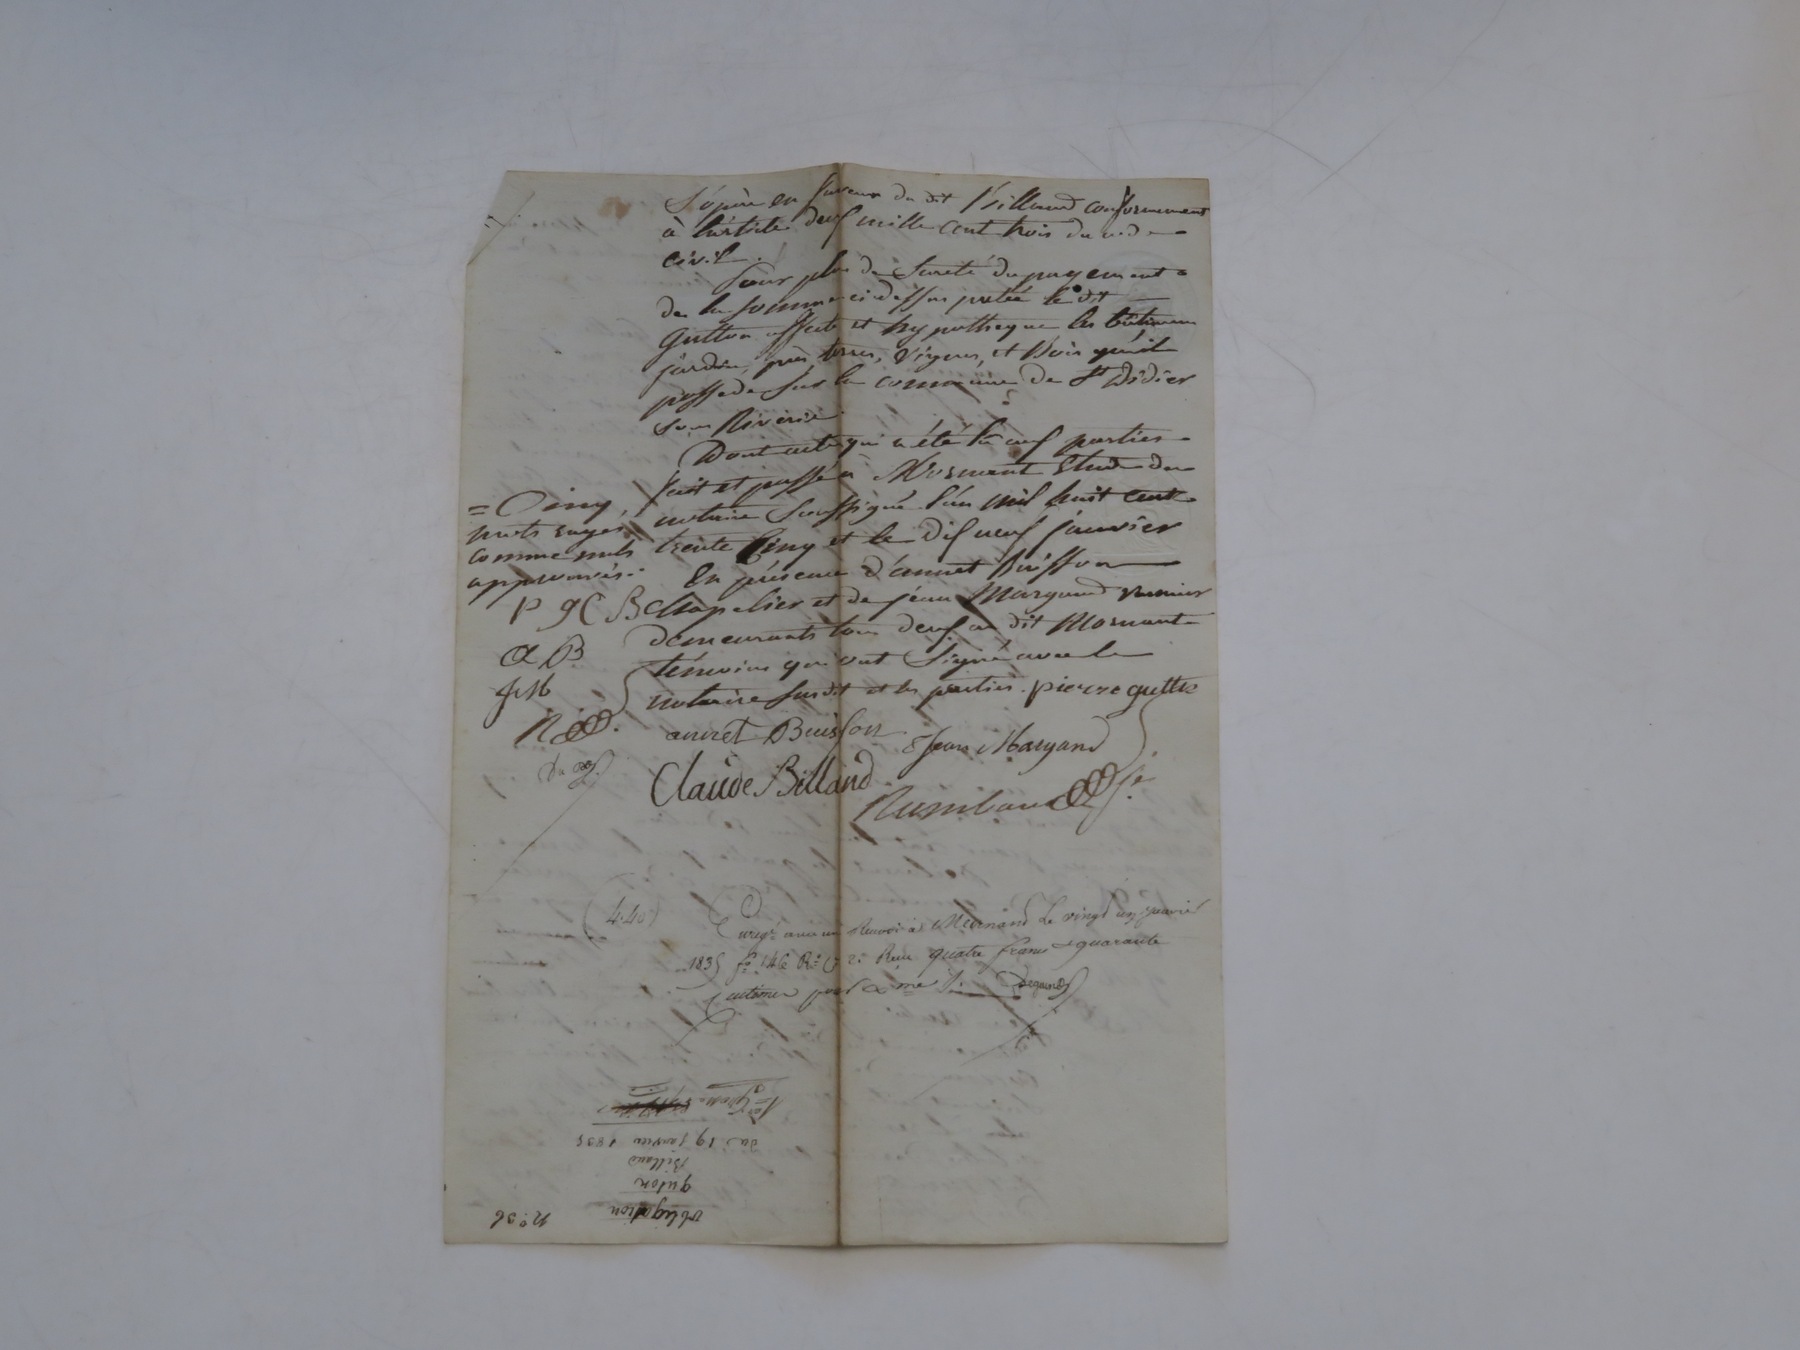 S'opère en faveur du dit Billand conformement
à l'article deux mille cent trois du code
civil.
Pour plus de sureté du payement
de la somme ci dessus pretée le dit
Gutton affecte et hypotheque les bâtimens
jardin, prés, terres, vignes, et Bois qu'il
possede sur la commune de St Didier
sous Riverie
Dont acte qui a été lû aux parties
fait et passé à Mornant Etude du
notaire soussigné l'an mil huit cent
trente Cinq et le dix neuf janvier
En présence d'annet Buisson
Chapelier et de jean Margand
demeurants tous deux au dit Mornant
témoins qui ont Signé avec le
notaire susdit et les parties. pierre gutto
= Cinq,
mots rayés
comme nuls
approuvés.
P g C B
a B
J. M
R
annet Buisson
Jean Margand
Claude Billand
Rambaud
(4.40)
Enregé avec un Renvoi à Mornand Le vingt un janvier
1835 fo 146 Ro Co 2. Reçu quatre francs quarante
centimes pour
No. 36
obligation
guton
Billand
du 19 janvier 1835